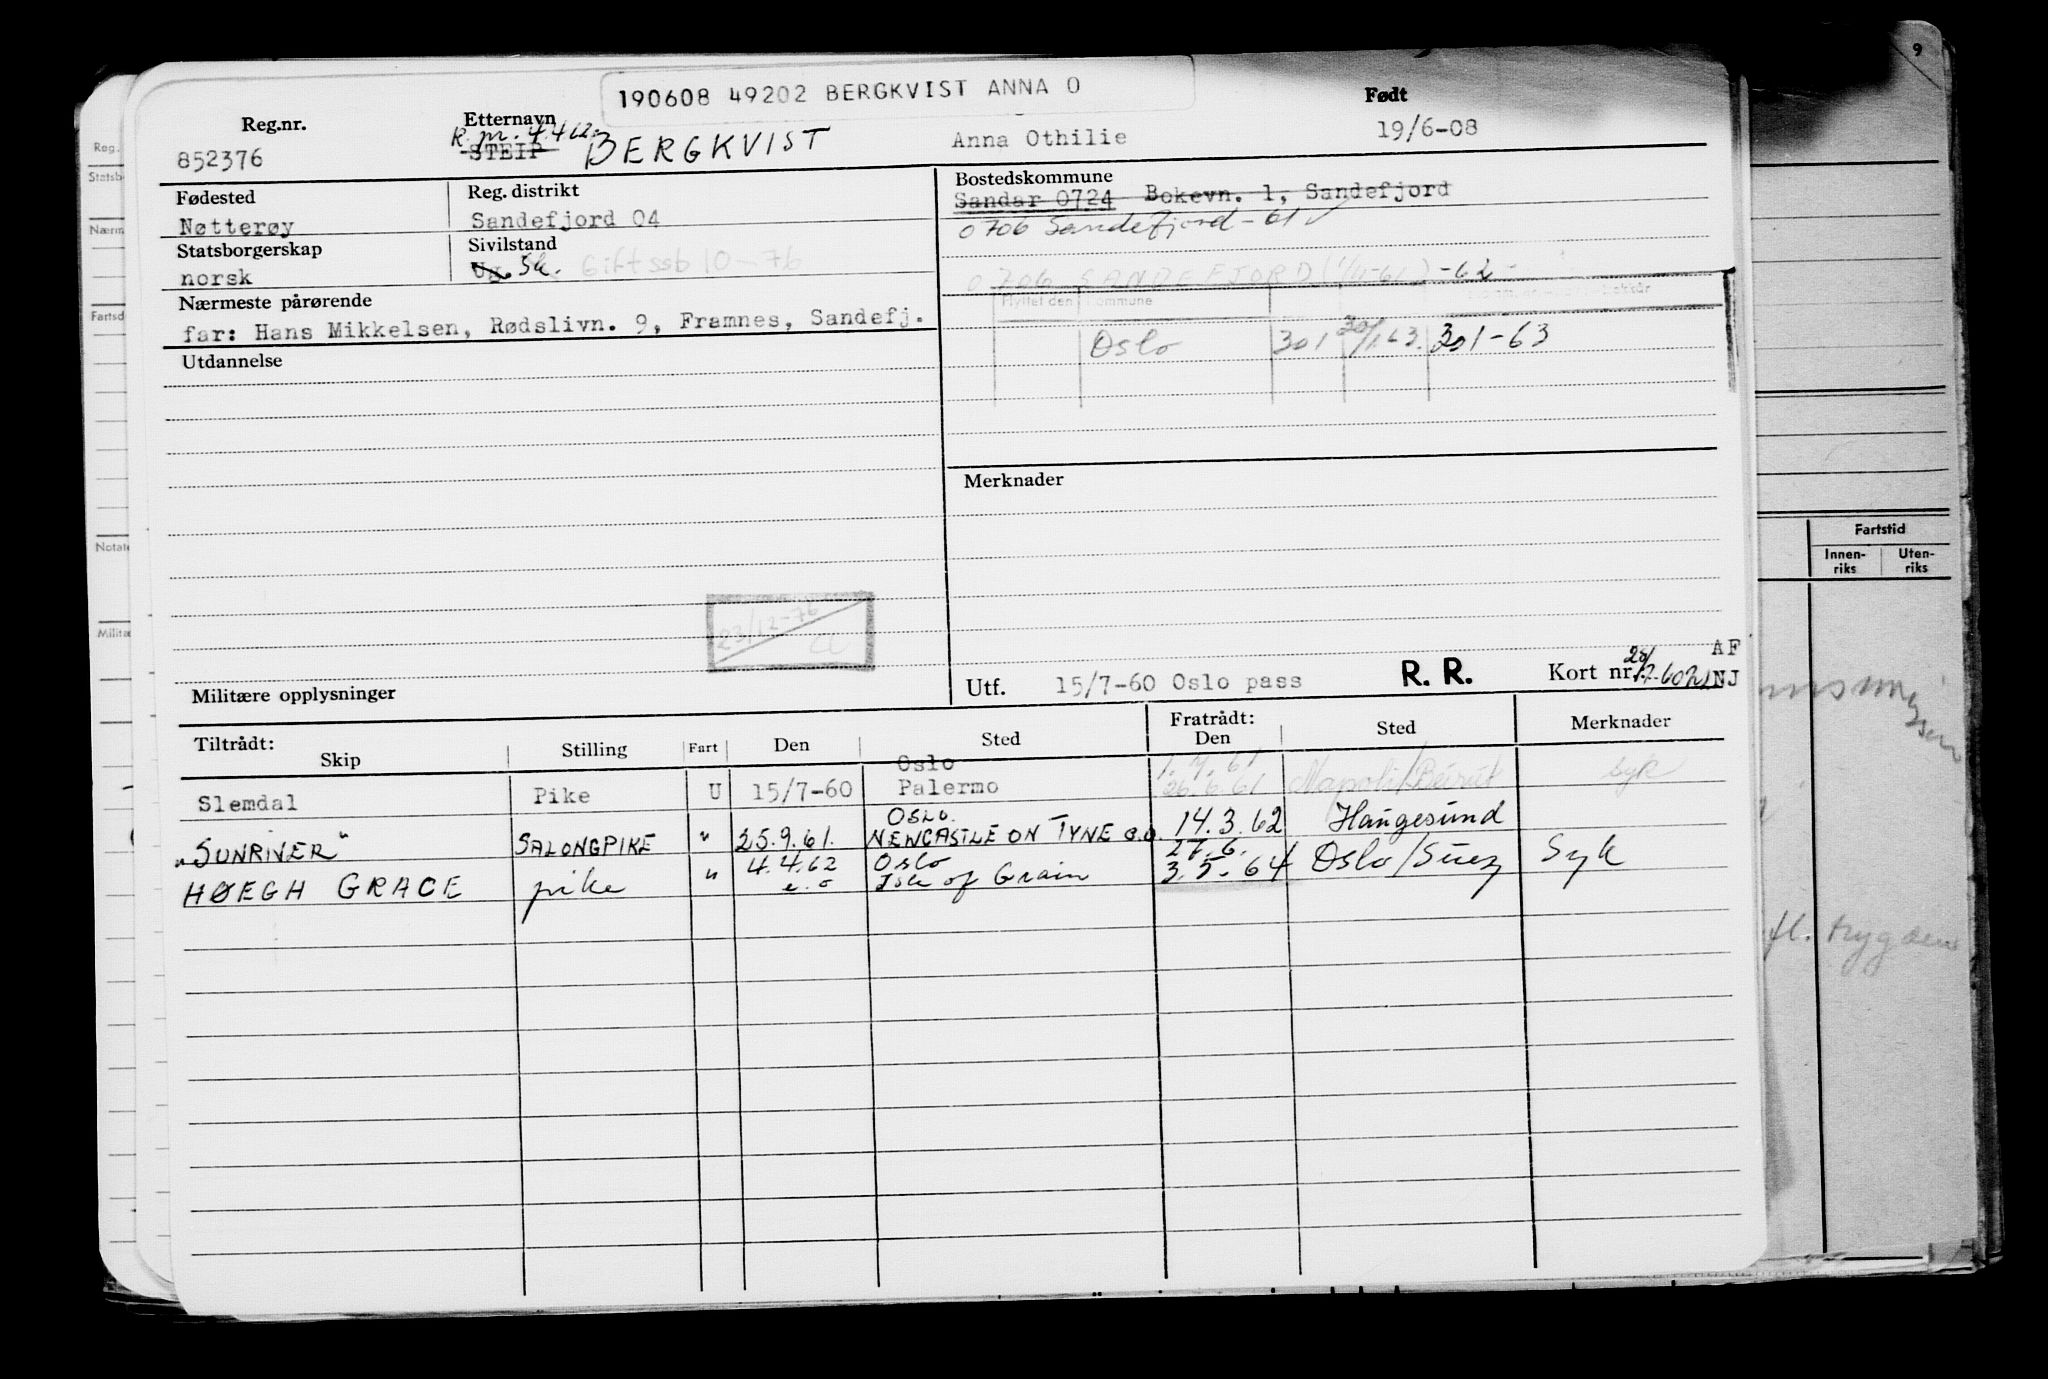 9
190608 49202 BERGKVIST ANNA O
Reg.nr.
Etternavn
Født
852376
STEIP BERGKVIST
Anna Othilie
19/6-08
Fødested
Nøtterøy
Reg. distrikt
Sandefjord 04
Bostedskommune
Sandar 0724 Bokevn. 1, Sandefjord
0706 Sandefjord - 61 ✓
Statsborgerskap
norsk
Sivilstand
Giftssb 10-76
0706 SANDEFJORD (1/11-61) -62
Nærmeste pårørende
far: Hans Mikkelsen, Rødslivn. 9, Framnes, Sandefj.
Flyttet den Kommune
Oslo 301 30/1.63. 301-63
Utdannelse
Merknader
23/12-76
Militære opplysninger
Utf. 15/7-60 Oslo pass
R. R.
Kort nr.
AF
NJ
Tiltrådt:
Skip
Stilling
Fart
Den
Sted
Fratrådt:
Den
Sted
Merknader
Oslo
1.4.61
Slemdal Pike U 15/7-60 Palermo 26.6.61 Napoli/Beirut syk
OSLO.
"SUNRIVER" SALONGPIKE " 25.9.61. NEWCASTLE ON TYNE e.o. 14.3.62 Haugesund
4.4.62 Oslo 27.6.
HØEGH GRACE pike " e.o Isle of Grain 3.5.64 Oslo/Suez Syk
Reg.
Statsb
Nærm
Fartsd
Notate
Militæ
Fartstid
Innen-
riks
Uten-
riks
fl. trygden